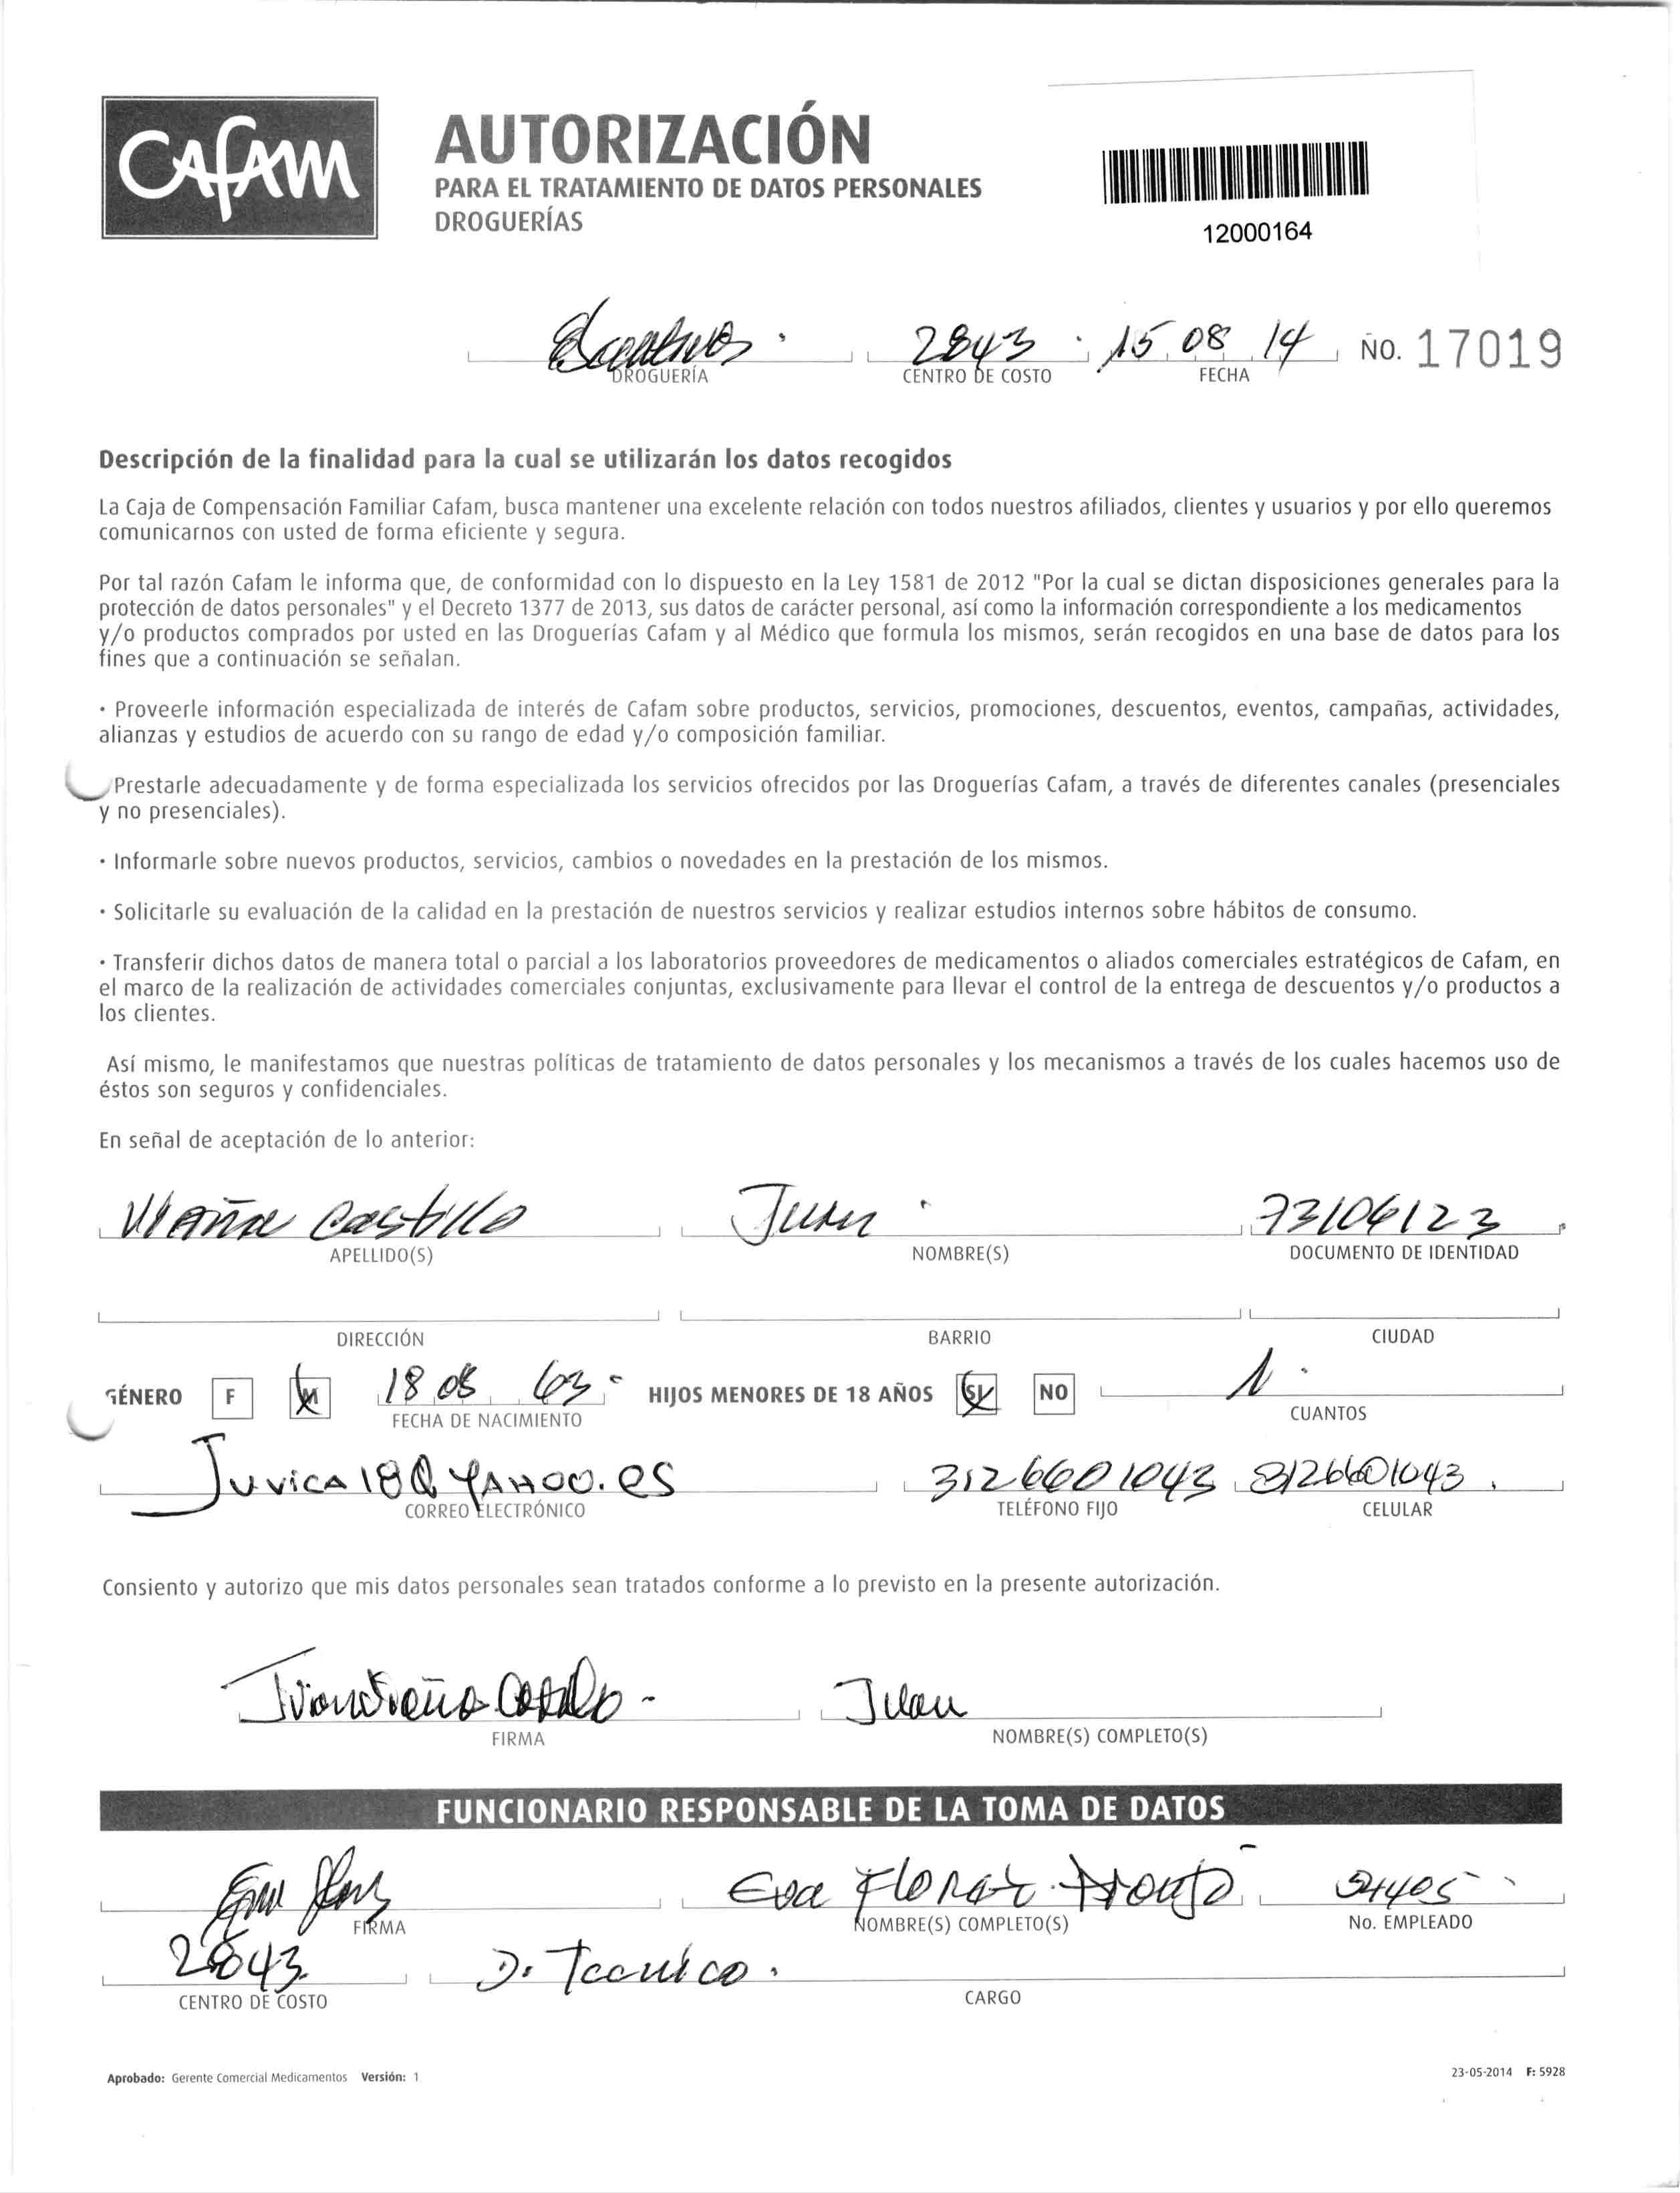 Cafam
AUTORIZACIÓN
PARA EL TRATAMIENTO DE DATOS PERSONALES
DROGUERÍAS
12000164
2843 15 08 14 No. 17019
DROGUERÍA CENTRO DE COSTO FECHA
Descripción de la finalidad para la cual se utilizarán los datos recogidos
La Caja de Compensación Familiar Cafam, busca mantener una excelente relación con todos nuestros afiliados, clientes y usuarios y por ello queremos
comunicarnos con usted de forma eficiente y segura.
Por tal razón Cafam le informa que, de conformidad con lo dispuesto en la Ley 1581 de 2012 "Por la cual se dictan disposiciones generales para la
protección de datos personales" y el Decreto 1377 de 2013, sus datos de carácter personal, así como la información correspondiente a los medicamentos
y/o productos comprados por usted en las Droguerías Cafam y al Médico que formula los mismos, serán recogidos en una base de datos para los
fines que a continuación se señalan.
· Proveerle información especializada de interés de Cafam sobre productos, servicios, promociones, descuentos, eventos, campañas, actividades,
alianzas y estudios de acuerdo con su rango de edad y/o composición familiar.
Prestarle adecuadamente y de forma especializada los servicios ofrecidos por las Droguerías Cafam, a través de diferentes canales (presenciales
y no presenciales).
· Informarle sobre nuevos productos, servicios, cambios o novedades en la prestación de los mismos.
· Solicitarle su evaluación de la calidad en la prestación de nuestros servicios y realizar estudios internos sobre hábitos de consumo.
· Transferir dichos datos de manera total o parcial a los laboratorios proveedores de medicamentos o aliados comerciales estratégicos de Cafam, en
el marco de la realización de actividades comerciales conjuntas, exclusivamente para llevar el control de la entrega de descuentos y/o productos a
los clientes.
Así mismo, le manifestamos que nuestras políticas de tratamiento de datos personales y los mecanismos a través de los cuales hacemos uso de
éstos son seguros y confidenciales.
En señal de aceptación de lo anterior:
Viaña Castillo Juan 73106123
APELLIDO(S) NOMBRE(S) DOCUMENTO DE IDENTIDAD
DIRECCIÓN BARRIO CIUDAD
GÉNERO F M 18 08 63 HIJOS MENORES DE 18 AÑOS SI NO 1
FECHA DE NACIMIENTO CUANTOS
Juvica18@YAHOO.es 3126601043 3126601043
CORREO ELECTRÓNICO TELÉFONO FIJO CELULAR
Consiento y autorizo que mis datos personales sean tratados conforme a lo previsto en la presente autorización.
Juan Viaña Castillo Juan
FIRMA NOMBRE(S) COMPLETO(S)
FUNCIONARIO RESPONSABLE DE LA TOMA DE DATOS
Eva
FIRMA NOMBRE(S) COMPLETO(S) No. EMPLEADO
2843 D. Tecnico.
CENTRO DE COSTO CARGO
Aprobado: Gerente Comercial Medicamentos Versión: 1 23-05-2014 F: 5928